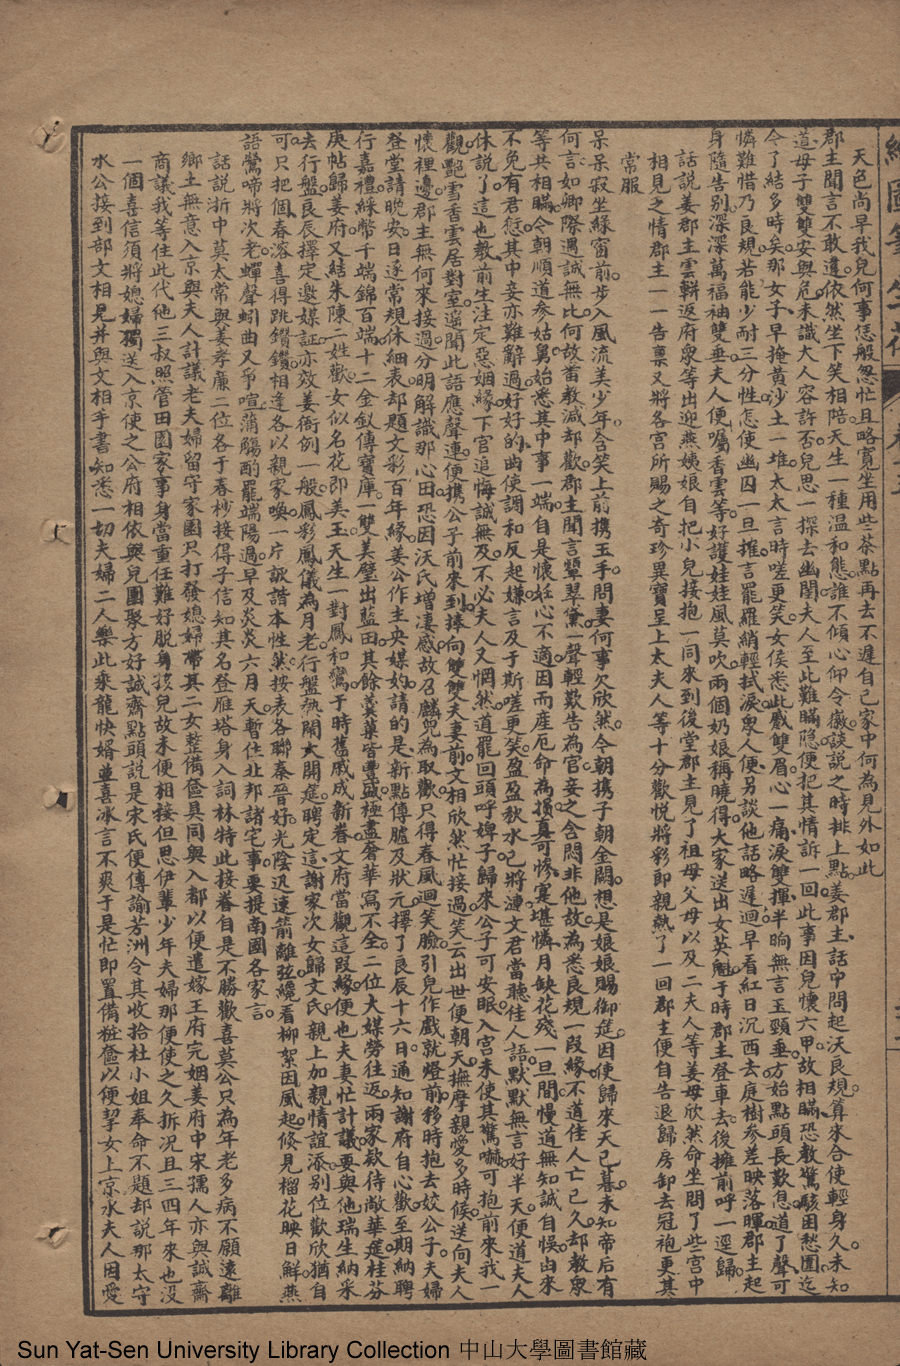 天色尚早我兒何事恁般怱忙且略寬坐用些茶點再去不遲自己家中何為見外如此
郡主聞言不敢違依然坐下笑相陪天生一種温和態誰不傾心仰令儀談說之時排上點姜郡主話中問起沃良規算來合使輕身久未知
道母子雙雙安與危未識大人容許否兒思一探去幽閨夫人至此難瞞隐便把其情訴一回此事因兒懷六甲故相瞞恐教驚駭困愁圍迄
今了結多時矣那女子早掩黄沙土一堆太太言時嗟更笑女侯悉此慼雙眉心一痛淚雙揮半晌無言玉頸垂方始點頭長歎息道了聲可
憐難惜乃良規若能少耐三分性怎使幽囚一旦摧言罷羅綃輕拭淚衆人便另談他話略遲迴早看紅日沉西去庭樹參差映落暉郡主起
身隨告别深深萬福袖雙垂夫人便囑香雲等好護娃娃風莫吹兩個奶娘稱曉得大家送出女英魁于時郡主登車去後擁前呼一逕歸
話說姜郡主雲軿返府衆等出迎燕姨娘自把小兒接抱一同來到後堂郡主見了祖母父母以及二夫人等姜母欣然命坐問了些宫中
相見之情郡主一一告禀又將各宫所賜之奇珍異寶呈上太夫人等十分歡悦將彩即親熱了一回郡主便自告退歸房卸去冠袍更其
常服
呆呆寂坐緑窗前步入風流美少年含笑上前携玉手問妻何事欠欣然今朝携子朝金闕想是娘娘賜御筵因使歸來天已暮未知帝后有
何言如卿際遇誠無比何故蛮教減却歡郡主聞言顰翠黛一聲輕歎告為官妾之含悶非他故為悉良規一段緣不道佳人亡已久却教衆
等共相瞞今朝順道參姑舅始悉其中事一端自是懷妊心不適因而産厄命為損真可慘寔堪憐月缺花殘一旦間慢道無知誠自悞由來
不免有君愆其中妾亦難辭過好好的曲使調和反起嫌言及于斯嗟更笑盈盈秋水已將漣文君當聽佳人語默默無言好半天便道夫人
休說了這也教前生注定惡姻緣下官追悔誠無及不必夫人又惘然道罷回頭呼婢子歸來公子可安眠入宫未使其驚嚇可抱前來我一
觀艷雪香雲居對室遥聞此語應聲連便携公子前來到捧向雙雙夫妻前文相欣然忙接過笑云出世便朝天撫摩親愛多時候送向夫人
懷裡邊郡主無何來接過分明解識那心田恐因沃氏增凄感故召麟兒為取歡只得春風迴笑臉引兒作戲就燈前移時抱去姣公子夫婦
登堂請晚安日逐常規休細表却題文彩百年緣姜公作主央媒妁請的是新點傅臚及狀元擇了良辰十六日通知謝府自心歡至期納聘
行嘉禮綵幣千端錦百端十二金釵傳寶庫一雙美璧出藍田其餘羹菓皆豐盛極盡奢華寫不全二位大媒勞往返兩家欵待敞華筵桂芬
庚帖歸姜府又結朱陳二姓歡女似名花即美玉天生一對鳳和鸞于時舊戚成新眷文府當觀這段緣便也夫妻忙計議要與他瑞生納采
去行盤良辰擇定邀媒証亦效姜衙例一般鳳彩鳳儀為月老行盤熱閙大開筵聘定這謝家次女歸文氏親上加親情誼添别位歡欣猶自
可只把個春溶喜得跳鑽鑽相逢各以親家喚一片詼諧本性然按表各聯秦晉好光陰迅速箭離弦纔看柳絮因風起倏見榴花映日鮮燕
語鶯啼將次老蟬聲蚓曲又爭喧蒲觴酌罷端陽過早及炎炎六月天暫住北邦諸宅事要提南國各家言
話說浙中莫太常與姜孝廉二位各于春杪接得子信知其名登雁塔身入詞林特此接眷自是不勝歡喜莫公只為年老多病不願遠離
鄉土無意入京與夫人計議老夫婦留守家園只打發媳婦帶其二女整備奩具同與入都以便遣嫁王府完姻姜府中宋孺人亦與誠齋
商議我等住此代他三叔照管田園家事身當重任難好脱身孩兒故未便相接但思伊輩少年夫婦那便使之久拆况且三四年來也没
一個喜信須將媳婦獨送入京使之公府相依與兒團聚方好誠齋點頭説是宋氏便傳諭芳洲令其收拾杜小姐奉命不題却説那太守
水公接到部文相見并與文相手書知悉一切夫婦二人樂此乘龍快婿並喜冰言不爽于是忙即置備粧奩以便挈女上京水夫人因愛
Sun Yat-Sen University Library Collection 中山大學圖書館藏